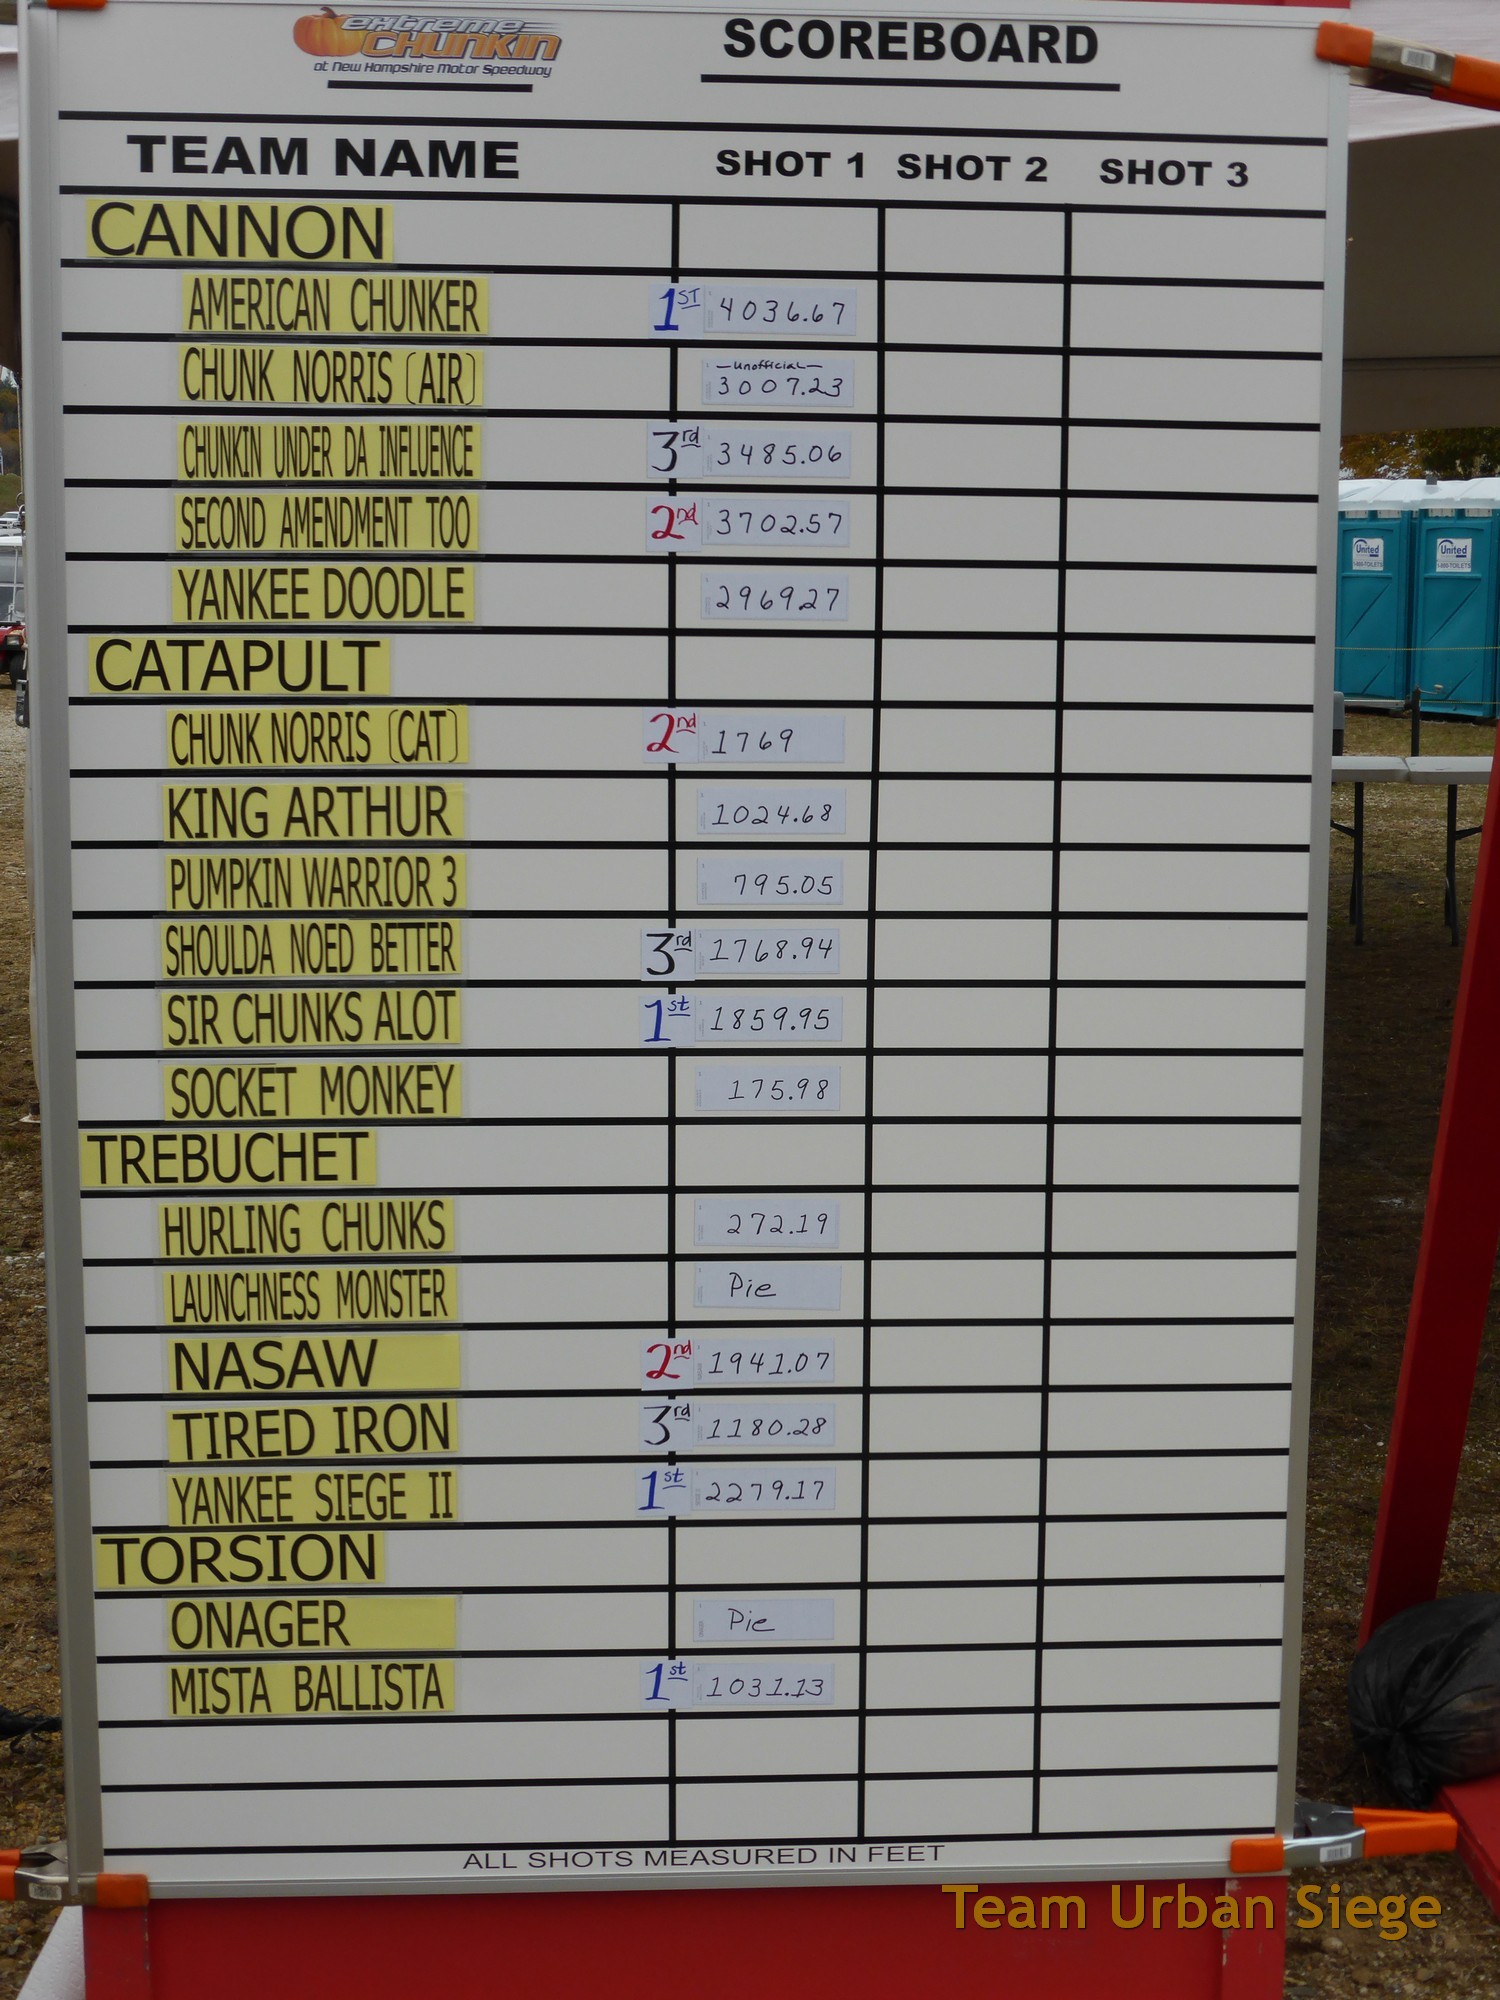 extreme
CHUNKIN
at New Hampshire Motor Speedway
SCOREBOARD
TEAM NAME SHOT 1 SHOT 2 SHOT 3
CANNON
AMERICAN CHUNKER 1ST 4036.67
CHUNK NORRIS (AIR) -unofficial- 3007.23
CHUNKIN UNDER DA INFLUENCE 3rd 3485.06
SECOND AMENDMENT TOO 2nd 3702.57
YANKEE DOODLE 2969.27
CATAPULT
CHUNK NORRIS (CAT) 2nd 1769
KING ARTHUR 1024.68
PUMPKIN WARRIOR 3 795.05
SHOULDA NOED BETTER 3rd 1768.94
SIR CHUNKS ALOT 1st 1859.95
SOCKET MONKEY 175.98
TREBUCHET
HURLING CHUNKS 272.19
LAUNCHNESS MONSTER Pie
NASAW 2nd 1941.07
TIRED IRON 3rd 1180.28
YANKEE SIEGE II 1st 2279.17
TORSION
ONAGER Pie
MISTA BALLISTA 1st 1031.13
ALL SHOTS MEASURED IN FEET
United
United
Team Urban Siege